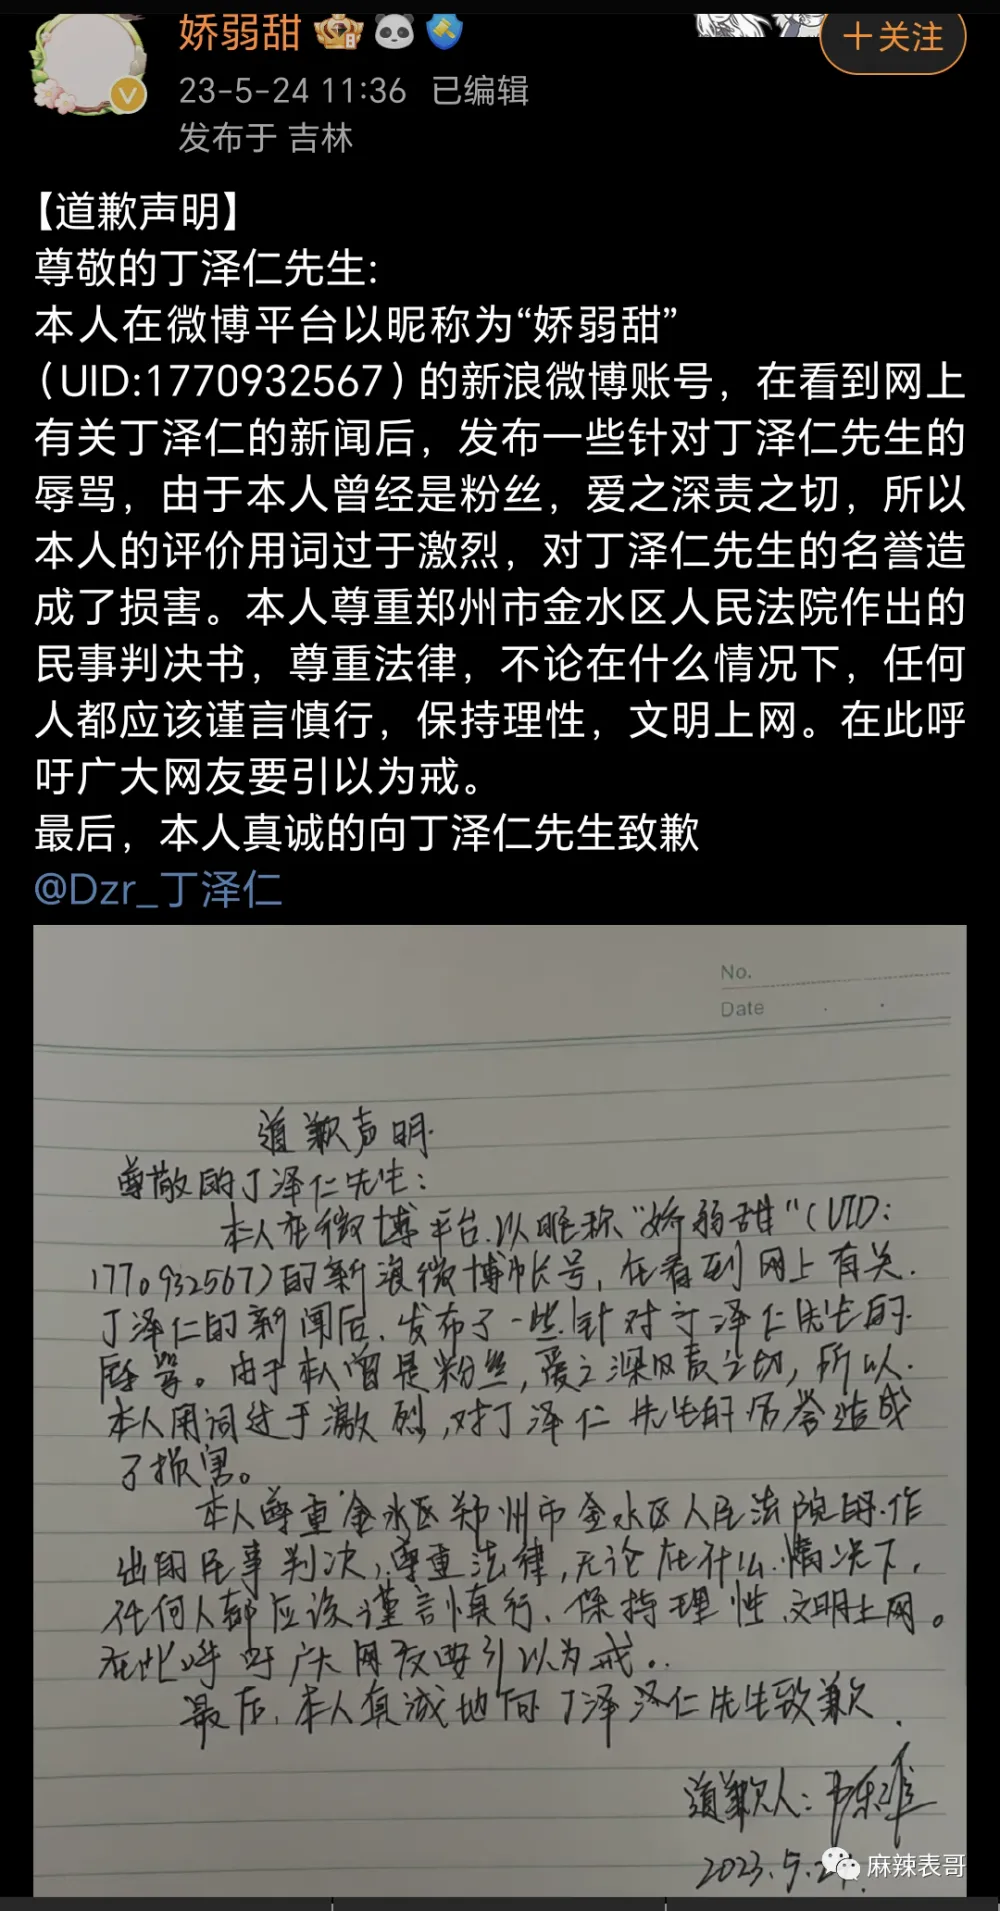 娇弱甜
+关注
23-5-24 11:36 已编辑
发布于 吉林
【道歉声明】
尊敬的丁泽仁先生:
本人在微博平台以昵称为“娇弱甜”
（UID:1770932567）的新浪微博账号，在看到网上
有关丁泽仁的新闻后，发布一些针对丁泽仁先生的
辱骂，由于本人曾经是粉丝，爱之深责之切，所以
本人的评价用词过于激烈，对丁泽仁先生的名誉造
成了损害。本人尊重郑州市金水区人民法院作出的
民事判决书，尊重法律，不论在什么情况下，任何
人都应该谨言慎行，保持理性，文明上网。在此呼
吁广大网友要引以为戒。
最后，本人真诚的向丁泽仁先生致歉
@Dzr_丁泽仁
No.
Date
道歉声明.
尊敬的丁泽仁先生：
本人在微博平台以昵称“娇弱甜”（UID:
1770932567）的新浪微博帐号，在看到网上有关.
丁泽仁的新闻后，发布了一些针对丁泽仁先生的
辱骂。由于本人曾是粉丝，爱之深责之切，所以.
本人用词过于激烈，对丁泽仁先生的名誉造成
了损害。
本人尊重金水区郑州市金水区人民法院的作
出的民事判决，尊重法律，无论在什么情况下，
任何人都应该谨言慎行，保持理性，文明上网。
在此呼吁广大网友要引以为戒。
最后，本人真诚地向丁泽泽仁先生致歉.
道歉人：
2023.5.24.
麻辣表哥